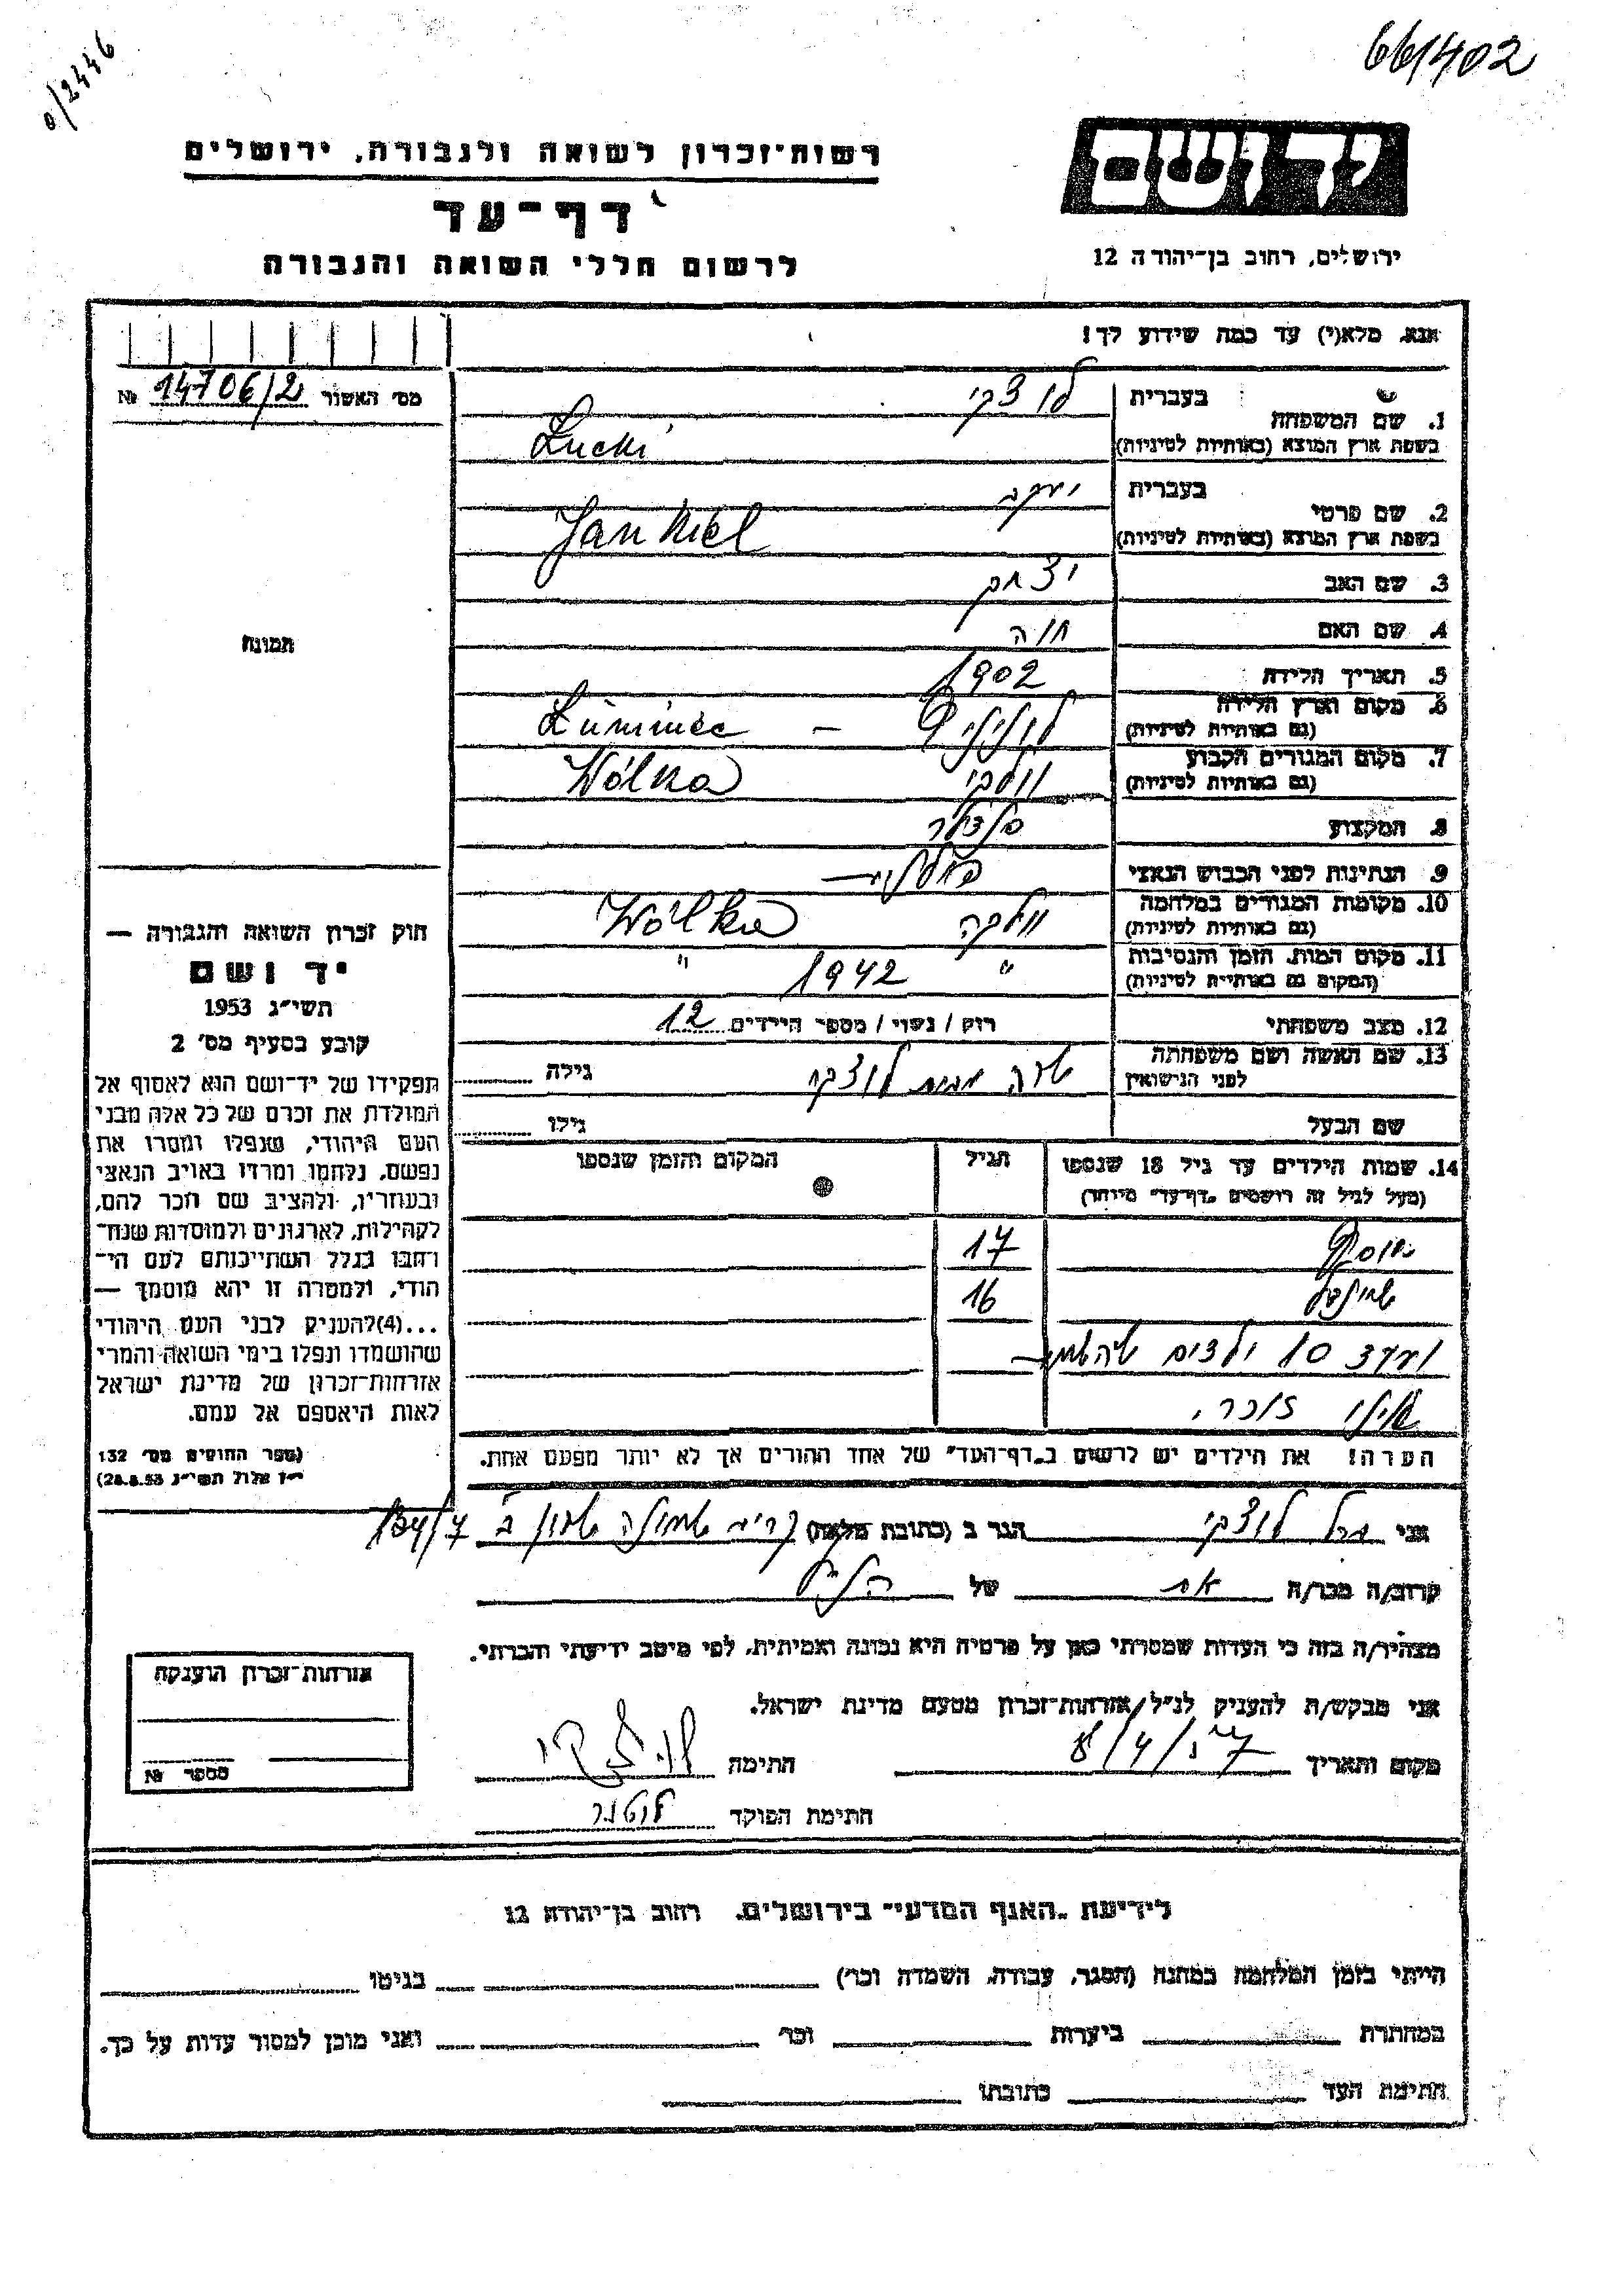 661402
0/2446
יד ושם
ירושלים, רחוב בן־יהודה 12
רשות־זכרון לשואה ולגבורה, ירושלים
דף־עד
לרשום חללי השואה והגבורה
אנא, מלא(י) עד כמה שידוע לך!
מס׳ האשור 14706/2 №
בעברית לוצקי
1. שם המשפחה
בשפת ארץ המוצא (באותיות לטיניות) Łucki
בעברית יעקב
2. שם פרטי
בשפת ארץ המוצא (באותיות לטיניות) Jankiel
3. שם האב יצחק
4. שם האם חוה
5. תאריך הלידה 1902
6. מקום וארץ הלידה
(גם באותיות לטיניות) – Łuniniec
7. מקום המגורים הקבוע
(גם באותיות לטיניות) Wólka
8. המקצוע
9. הנתינות לפני הכבוש הנאצי
10. מקומות המגורים במלחמה
(גם באותיות לטיניות) וולקה Wólka
11. מקום המות, הזמן והנסיבות
(המקום גם באותיות לטיניות) " 1942 "
12. מצב משפחתי רוק / נשוי / מספר הילדים 12
13. שם האשה ושם משפחתה
לפני הנישואין שרה מבית לוצקי גילה
שם הבעל גילו
14. שמות הילדים עד גיל 18 שנספו הגיל המקום והזמן שנספו
(מעל לגיל זה רושמים „דף־עד״ מיוחד)
יוסף 17
16
ועוד 10 ילדים
אינו זוכר.
הערה! את הילדים יש לרשום ב„דף־העד״ של אחד ההורים אך לא יותר מפעם אחת.
תמונה
חוק זכרון השואה והגבורה —
יד ושם
תשי״ג 1953
קובע בסעיף מס׳ 2
תפקידו של יד־ושם הוא לאסוף אל
המולדת את זכרם של כל אלה מבני
העם היהודי, שנפלו ומסרו את
נפשם, נלחמו ומרדו באויב הנאצי
ובעוזריו, ולהציב שם וזכר להם,
לקהילות, לארגונים ולמוסדות שנח־
רבו בגלל השתייכותם לעם הי־
הודי, ולמטרה זו יהא מוסמך —
...(4)להעניק לבני העם היהודי
שהושמדו ונפלו בימי השואה והמרי
אזרחות־זכרון של מדינת ישראל
לאות היאספם אל עמם.
(ספר החוקים מס׳ 132
י״ז אלול תשי״ג 28.8.53)
אני לוצקי הגר ב (כתובת מלאה) 134/7
קרוב/ה מכר/ה אח של הנ״ל
מצהיר/ה בזה כי העדות שמסרתי כאן על פרטיה היא נכונה ואמיתית, לפי מיטב ידיעתי והכרתי.
אני מבקש/ת להעניק לנ״ל/אזרחות־זכרון מטעם מדינת ישראל.
מקום ותאריך חתימה לוצקי
חתימת הפוקד
אזרחות־זכרון הוענקה
מספר №
לידיעת „האגף המדעי״ בירושלים, רחוב בן־יהודה 12
הייתי בזמן המלחמה במחנה (הסגר, עבודה, השמדה וכו׳) בגיטו
במחתרת ביערות וכו׳ ואני מוכן למסור עדות על כך.
חתימת העד כתובתו